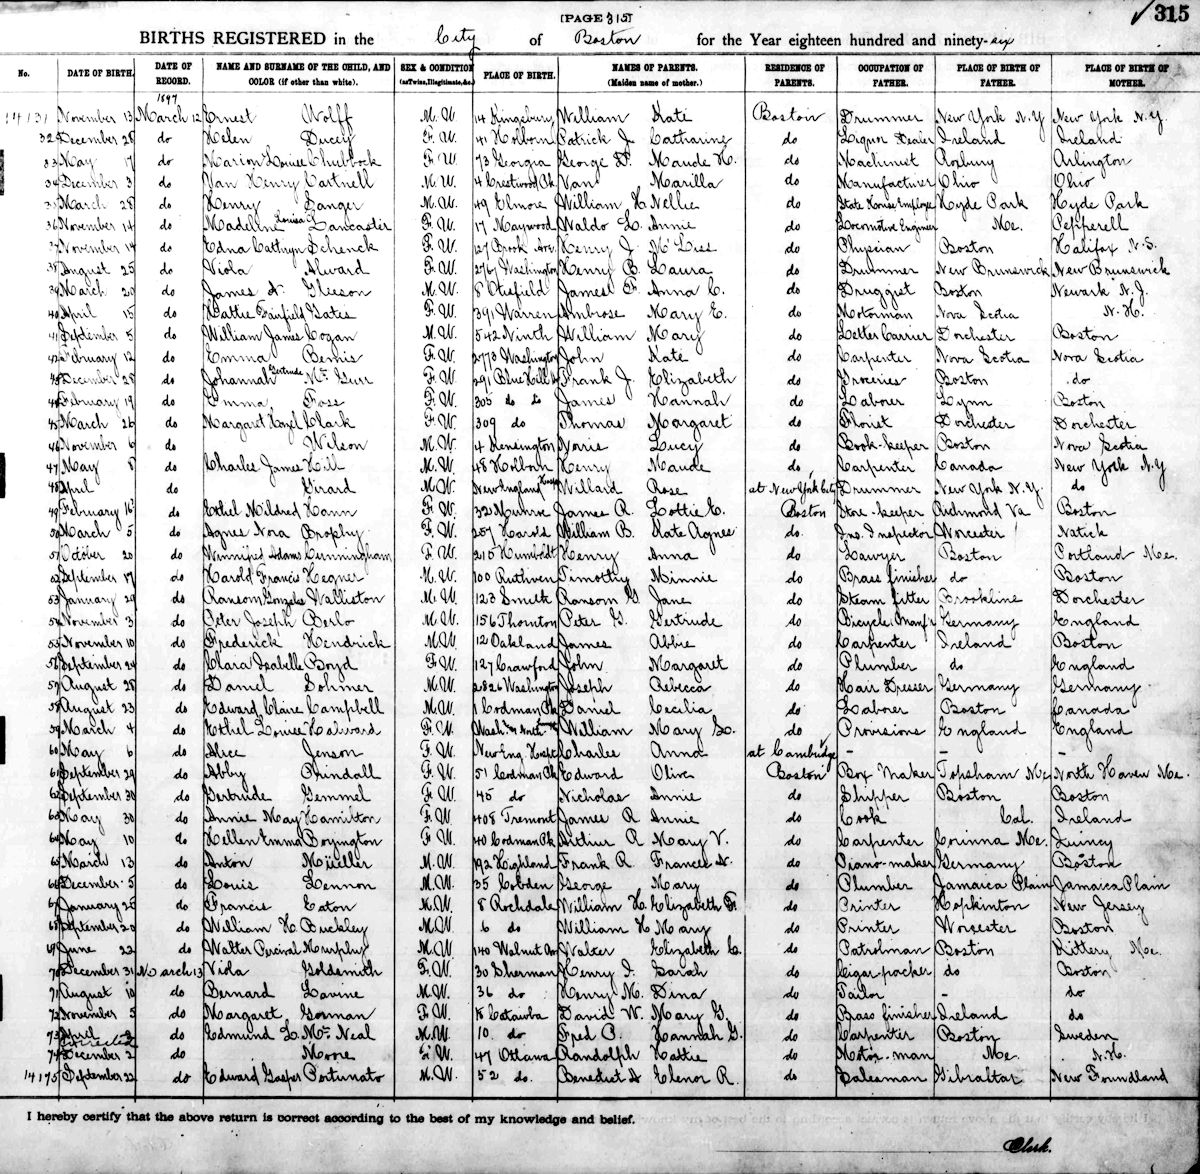 [PAGE 315]
✓ 315
BIRTHS REGISTERED in the City of Boston for the Year eighteen hundred and ninety-six
No. DATE OF BIRTH. DATE OF RECORD. NAME AND SURNAME OF THE CHILD, AND COLOR (if other than white). SEX & CONDITION (as Twins, Illegitimate, &c.) PLACE OF BIRTH. NAMES OF PARENTS. (Maiden name of mother.) RESIDENCE OF PARENTS. OCCUPATION OF FATHER. PLACE OF BIRTH OF FATHER. PLACE OF BIRTH OF MOTHER.
1897
14131 November 13 March 12 Ernest Wolff M. W. 14 Kingsbury William Kate Boston Drummer New York N.Y. New York N.Y.
32 December 28 do Helen Ducey F. W. 41 Holborn Patrick J. Catharine do Liquor Dealer Ireland Ireland
33 May 17 do Marion Louise Chubbock F. W. 73 Georgia George D. Maude H. do Machinist Roxbury Arlington
34 December 3 do Van Henry Cartnell M. W. 4 Crestwood Pk Van Marilla do Manufacturer Ohio Ohio
35 March 28 do Henry Langer M. W. 49 Elmore William H. Nellie do State House Employe Hyde Park Hyde Park
36 November 14 do Madeline Louisa Lancaster F. W. 17 Maywood Waldo L. Annie do Locomotive Engineer Me. Pepperell
37 November 14 do Edna Cathryn Schenck F. W. 127 Brook Ave. Henry J. Mc Lies do Physician Boston Halifax N.S.
38 August 25 do Viola Alward F. W. 2767 Washington Henry B. Laura do Drummer New Brunswick New Brunswick
39 March 20 do James A. Gleeson M. W. 8 Otisfield James F. Anna C. do Druggist Boston Newark N.J.
40 April 15 do Hattie Fairfield Gates F. W. 391 Warren Ambrose Mary E. do Motorman Nova Scotia N. H.
41 September 5 do William James Cogan M. W. 542 Ninth William Mary do Letter Carrier Dorchester Boston
42 February 12 do Emma Bemis F. W. 2773 Washington John Kate do Carpenter Nova Scotia Nova Scotia
43 December 28 do Johannah Gertrude Mc Gurr F. W. 291 Blue Hill Frank J. Elizabeth do Groceries Boston do
44 February 19 do Emma Fose F. W. 305 do do James Hannah do Laborer Lynn Boston
45 March 26 do Margaret Hazel Clark F. W. 309 do Thomas Margaret do Florist Dorchester Dorchester
46 November 6 do Wilson M. W. 4 Kensington Norris Lucy do Book-keeper Boston Nova Scotia
47 May 8 do Charles James Hill M. W. 48 Holborn Henry Maude do Carpenter Canada New York N.Y
48 April do Girard M. W. New England Willard Rose at New York City Drummer New York N.Y. do
49 February 16 do Ethel Mildred Hann F. W. 32 Munroe James R. Lottie C. Boston Store-keeper Richmond Va Boston
50 March 5 do Agnes Nora Brophy F. W. 257 Harold William B. Kate Agnes do Ins. Inspector Worcester Natick
51 October 20 do Winnifred Adams Cunningham F. W. 215 Humboldt Henry Anna do Lawyer Boston Portland Me.
52 September 17 do Harold Francis Hegner M. W. 100 Ruthven Timothy Minnie do Brass finisher do Boston
53 January 29 do Ransom Gonzales Walliston M. W. 123 Smith Ransom G. Jane do Steam fitter Brookline Dorchester
54 November 3 do Peter Joseph Berlo M. W. 156 Thornton Peter G. Gertrude do Bicycle Manf'r Germany England
55 November 10 do Frederick Hendrick M. W. 12 Oakland James Abbie do Carpenter Ireland Boston
56 September 24 do Clara Isabelle Boyd F. W. 127 Crawford John Margaret do Plumber do England
57 August 28 do Daniel Sohmer M. W. 2826 Washington Joseph Rebecca do Hair Dresser Germany Germany
58 August 23 do Edward Claire Campbell M. W. 1 Codman Pk Daniel Cecilia do Laborer Boston Canada
59 March 4 do Ethel Louise Halward F. W. William Mary L. do Provisions England England
60 May 6 do Alice Jenson F. W. New Eng. Hospt Charles Anna at Cambridge - - -
61 September 29 do Abby Chindall F. W. 51 Codman Pk Edward Olive Boston Box Maker Topsham Me North Haven Me.
62 September 30 do Gertrude Gemmel F. W. 45 do Nicholas Annie do Shipper Boston Boston
63 May 30 do Annie May Hamilton F. W. 408 Tremont James R Annie do Cook Cal. Ireland
64 May 10 do Hellen Emma Boyington F. W. 40 Codman Pk Arthur R Mary V. do Carpenter Corinna Me. Quincy
65 March 13 do Anton Müeller M. W. 192 Highland Frank R. Frances A. do Piano-maker Germany Boston
66 December 5 do Louis Lennon M. W. 35 Cobden George Mary do Plumber Jamaica Plain Jamaica Plain
67 January 25 do Francis Eaton M. W. 8 Rockdale William H. Elizabeth F. do Printer Hopkinton New Jersey
68 September 20 do William H. Buckley M. W. 6 do William H Mary do Printer Worcester Boston
69 June 22 do Walter Percival Murphy M. W. 140 Walnut Av Walter Elizabeth C. do Patrolman Boston Kittery Me.
70 December 31 March 13 Viola Goldsmith F. W. 30 Sherman Henry I. Sarah do Cigar-packer do Boston
71 August 10 do Bernard Lavine M. W. 36 do Henry M. Dina do Tailor - do
72 November 5 do Margaret Gorman F. W. 18 Catawba David W. Mary G. do Brass finisher Ireland do
73 April 2 do Edmund L. Mc Neal M. W. 10 do Fred C. Hannah G. do Carpenter Boston Sweden
74 December 2 do Moore W. 47 Ottawa Randolph Hattie do Motor-man Me. N. H.
14175 September 22 do Edward Gasper Portunato M. W. 52 do. Benedict A Elenor R. do Salesman Gibraltar New Foundland
I hereby certify that the above return is correct according to the best of my knowledge and belief.
Clerk.